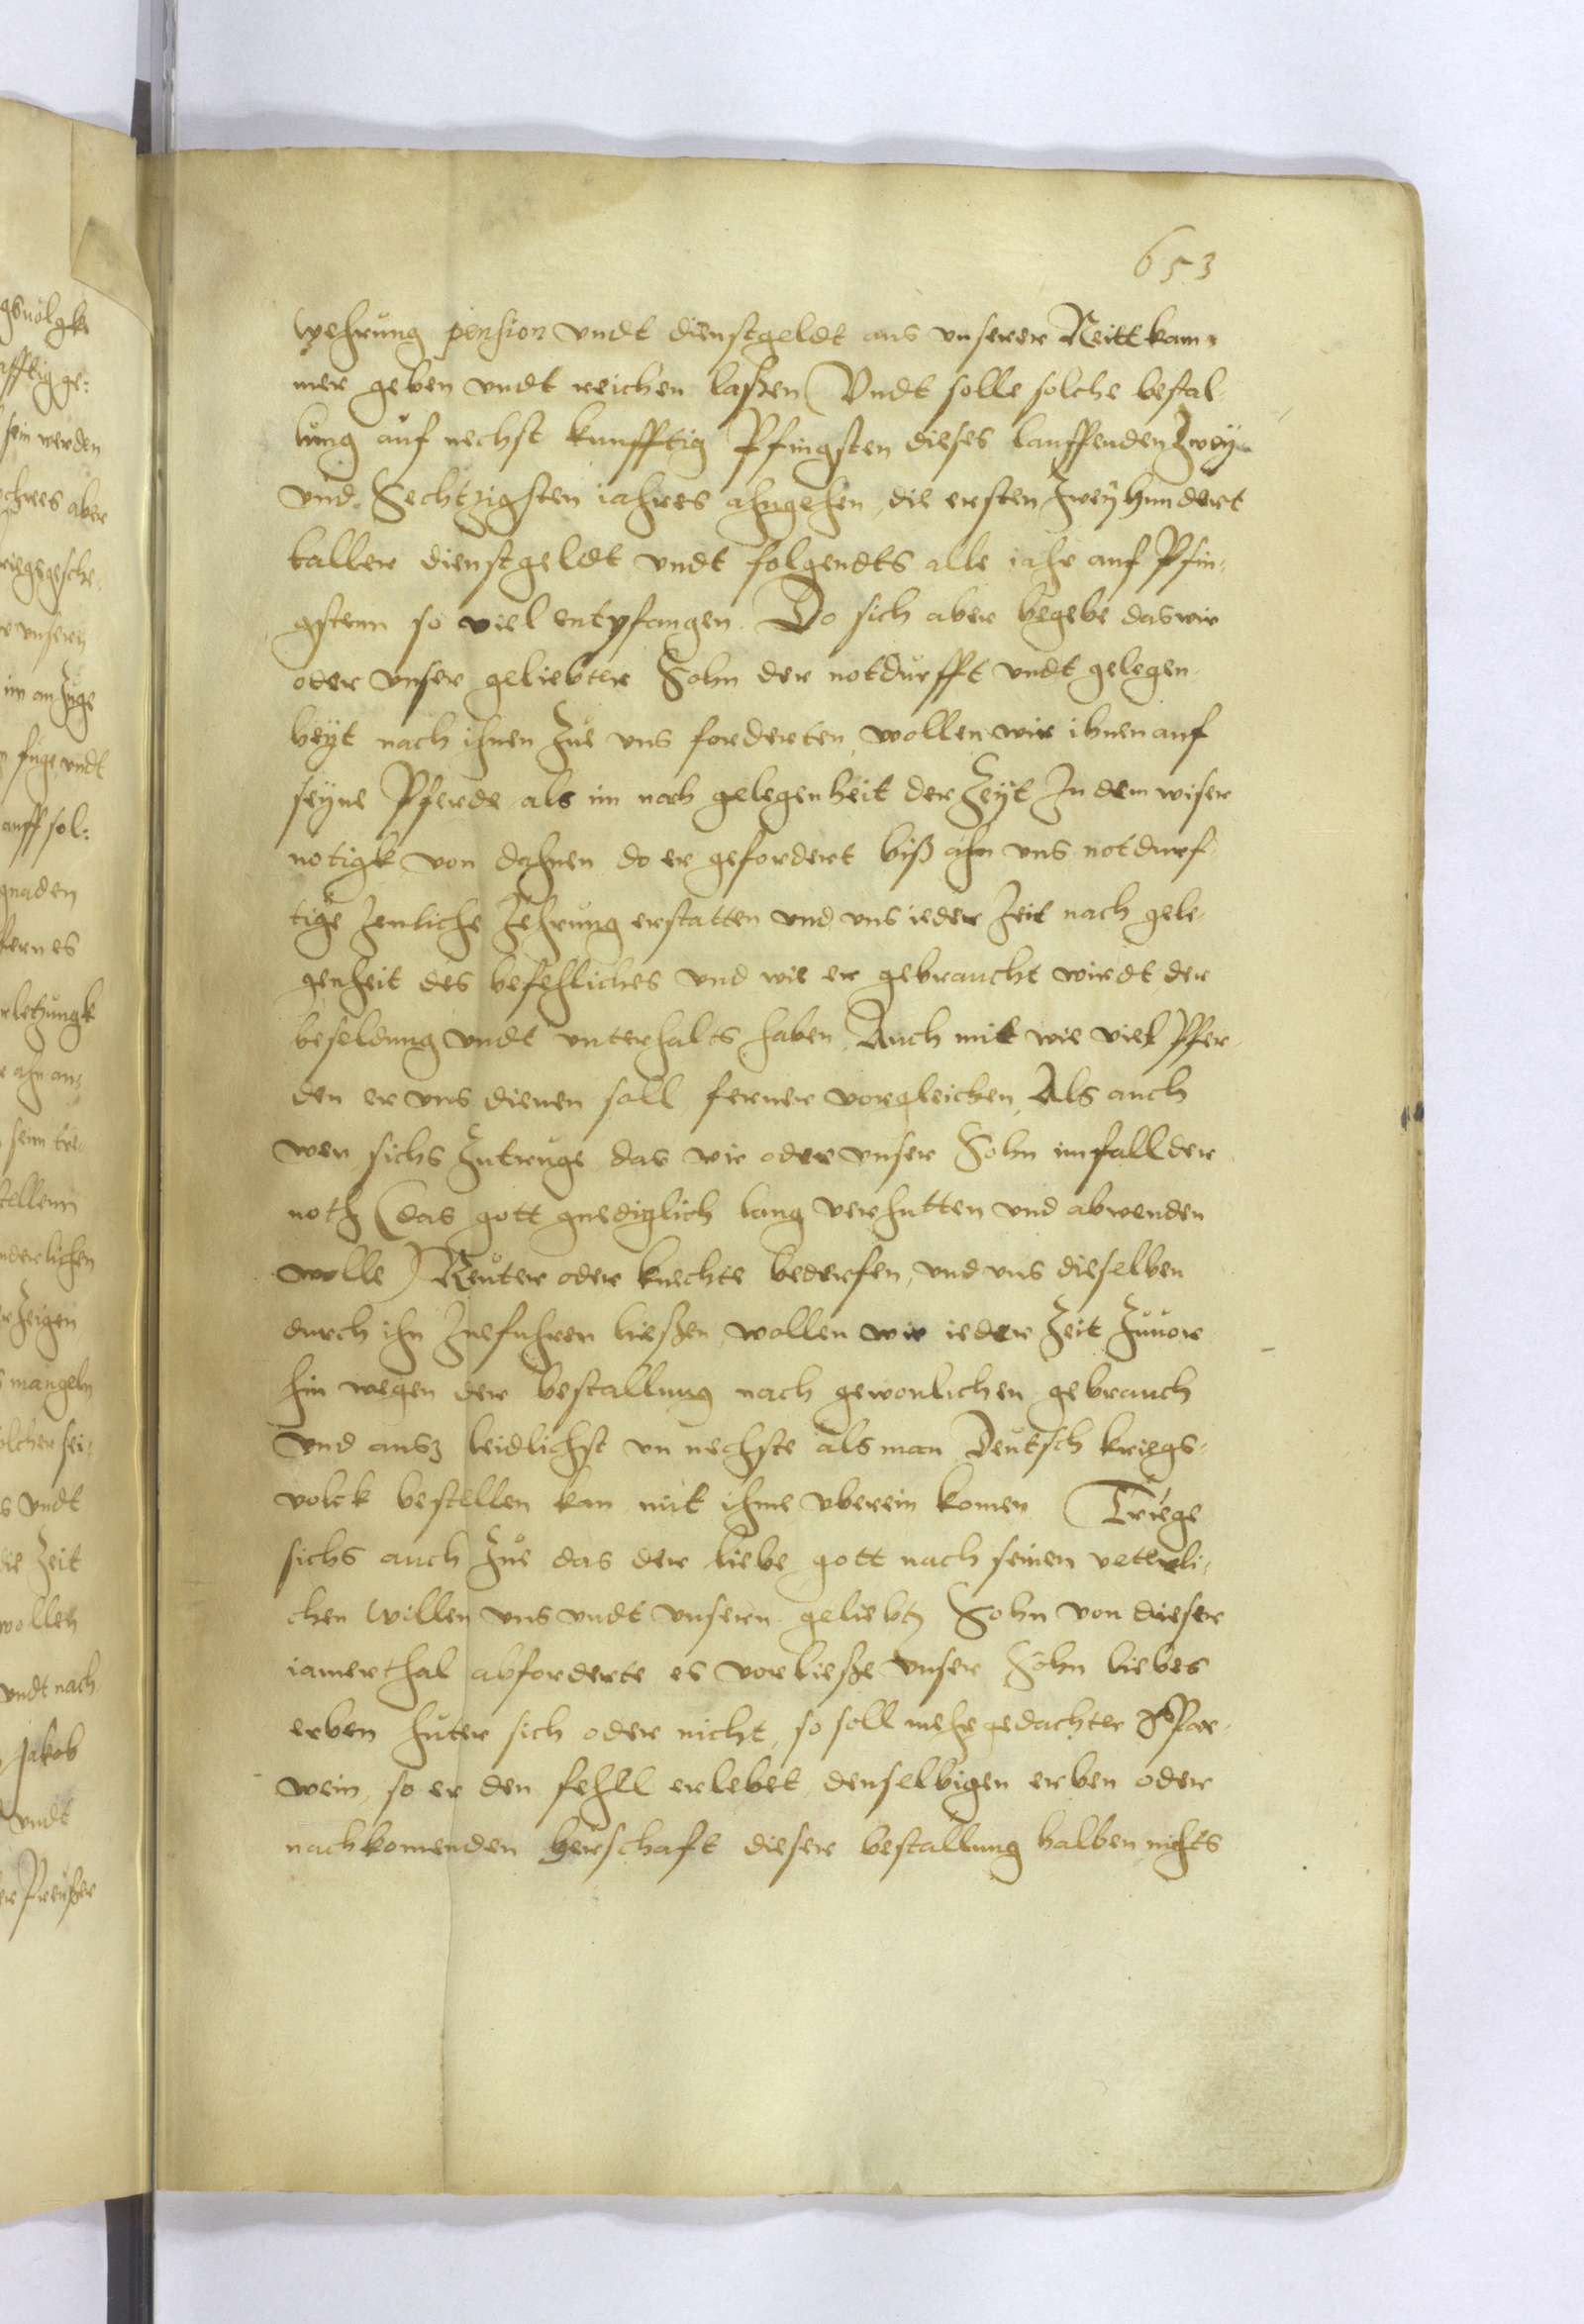 653
wehrung pension vndt dienstgeldt aus vnserer Reittkam=
mer geben vndt reichen laßen Vndt solle solche bestal-
lung auf nechst kunfftig Pfingsten dieses lauffenden Zwey
vnd Sechtzigsten iahres ahngehen, die ersten Zweyhundert
taller dienstgeldt vndt folgendts alle iahr auf Pfin-
gstenn so viel entpfangen. Do sich aber begebe das wir
oder vnser geliebter Sohn der notdurfft vndt gelegen-
heyt nach ihnen Zue vns forderten, wollen wir ihnen auf
seyne Pferde als im nach gelegenheit der Zeyt In dem wiser
notigk von dahnen do er gefordert biß ahn vns notdurf-
tige Zemliche Zehrung erstatten vnd vns ieder Zeit nach gele-
genheit des befehliches vnd wie er gebraucht wirdt, der
besoldung vndt vnterhalts haben, Auch mit wie viel Pfer-
den er vns dienen soll ferner vorgleichen, Als auch
wen sichs Zutruge das wir oder vnser Sohn im fall der
noth (das gott gnediglich lang verhutten vnd abwenden
wolle) Reuter oder knechte bederfen, vnd vns dieselben
durch ihn Zuefuhren ließen, wollen wir ieder Zeit Zuuor
hin wegen der bestallung nach gewonlichen gebrauch
vnd aufs leidlichst vn nechste als man Deutsch kriegs-
volck bestellen kan mit ihme vberein komen Truege
sichs auch Zue das der liebe gott nach seinen vetterli-
chen willen vns vndt vnsern geliebten Sohn von dieser
iamerthal abforderte es vorließe vnser Sohn liebes
erben hinter sich oder nicht, so soll mehr gedachter
wein, so er den fehll erlebet, denselbigen erben oder
nachkomenden herschaft dieser bestallung halben nichts